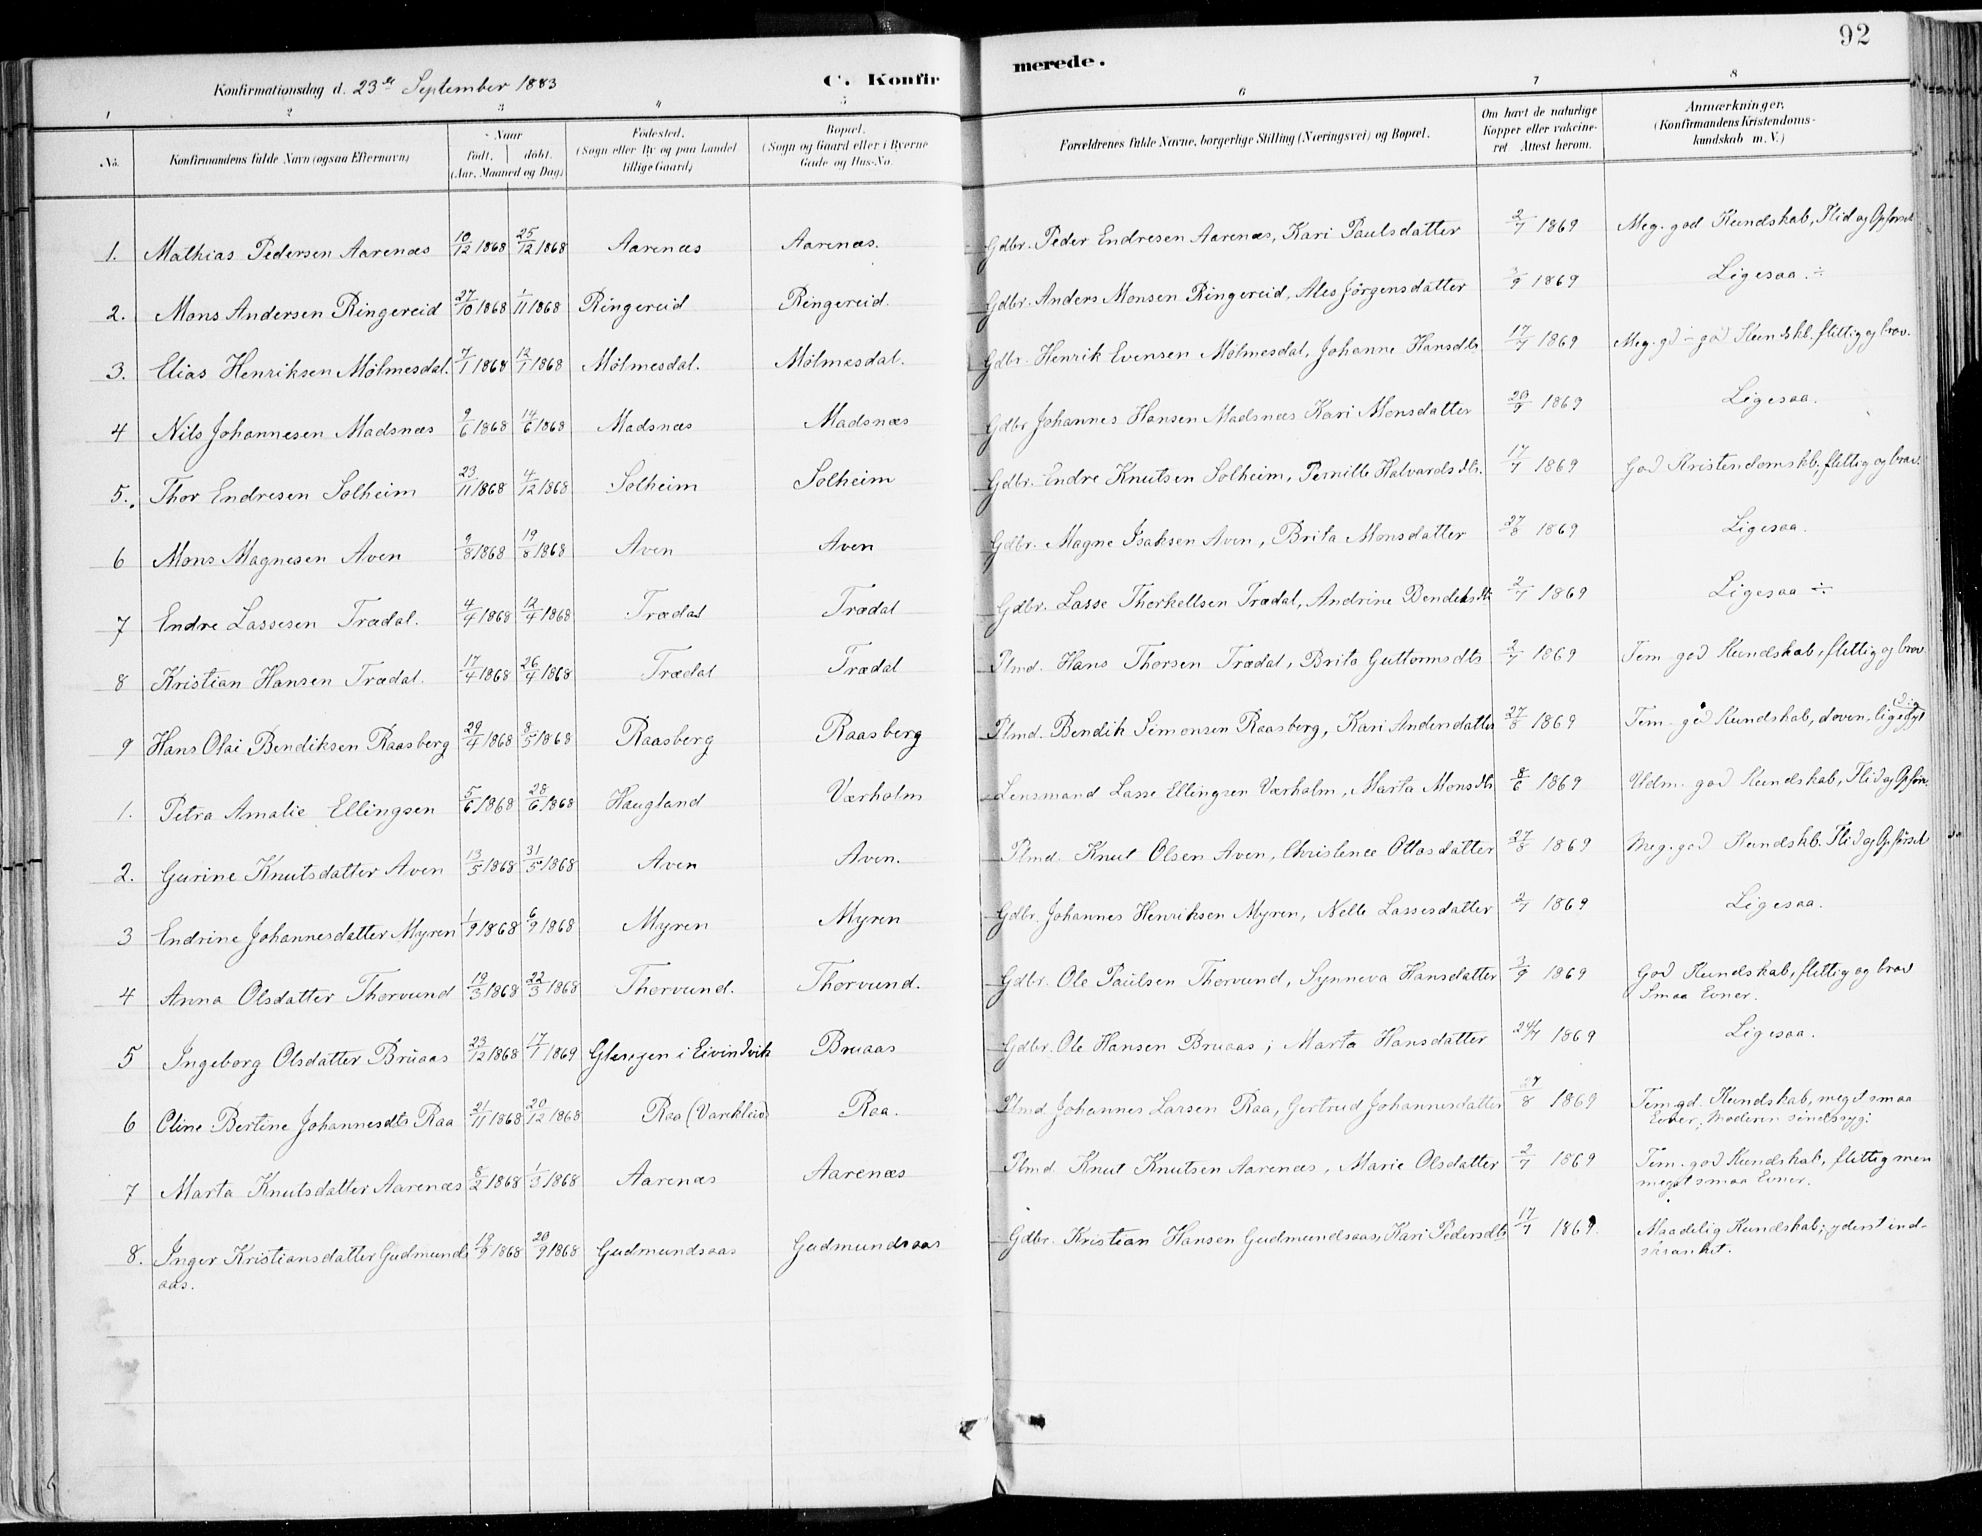 92
Konfirmationsdag d. 23de September 1883
C. Konfir
merede.
1 2 3 4 5 6 7 8
No.
Konfirmandens fulde Navn (ogsaa Efternavn)
Naar
født. døbt.
(Aar, Maaned og Dag)
Fødested.
(Sogn eller By og paa Landet
tillige Gaard)
Bopæl.
(Sogn og Gaard eller i Byerne
Gade og Hus-No.
Forældrenes fulde Navne, borgerlige Stilling (Næringsvei) og Bopæl.
Om havt de naturlige
Kopper eller vakcine-
ret Attest herom.
Anmærkninger.
(Konfirmandens Kristendoms-
kundskab m. V.)
1. Mathias Pedersen Aarenæs 10/12 1868 25/12 1868 Aarenæs Aarenæs. Gdbr. Peder Endresen Aarenæs, Kari Paulsdatter 2/7 1869 Meg. god Kundskab, Flid og Opførsel
2. Mons Andersen Ringereid 27/10 1868 1/11 1868 Ringereid Ringereid. Gdbr. Anders Monsen Ringereid, Ales Jörgensdatter 3/9 1869 Ligesaa. ÷
3. Elias Henriksen Mølmesdal. 7/1 1868 12/1 1868 Mølmesdal. Mølmesdal. Gdbr. Henrik Evensen Mølmesdal, Johanne Hansdtr 17/7 1869 Meg. gd ÷ god Kundskb. flittig og brav.
4 Nils Johannesen Madsnæs 9/6 1868 14/6 1868 Madsnæs Madsnæs Gdbr Johannes Hansen Madsnæs Kari Monsdatter 20/9 1869 Ligesaa.
5. Thor Endresen Solheim 23/11 1868 4/12 1868 Solheim Solheim Gdbr. Endre Knutsen Solheim, Pernille Halvardsdtr. 17/7 1869 God Kristendomskb, flittig og brav.
6 Mons Magnesen Aven 9/8 1868 19/8 1868 Aven Aven Gdbr. Magne Isaksen Aven, Brita Monsdatter 27/8 1869 Ligesaa.
7 Endre Lassesen Trædal. 4/4 1868 12/4 1868 Trædal Trædal Gdbr. Lasse Thorkellsen Trædal, Andrine Bendiksdtr 2/7 1869 Ligesaa ÷
8 Kristian Hansen Trædal. 17/4 1868 26/4 1868 Trædal Trædal Plmd. Hans Thorsen Trædal, Brita Guttormsdtr 2/7 1869 Tem. god Kundskab, flittig og brav
9 Hans Olai Bendiksen Raasberg 29/4 1868 8/5 1868 Raasberg Raasberg Plmd. Bendik Simonsen Raasberg, Kari Andersdatter 27/8 1869 Tem. god Kundskab, doven, ligegyl
dig
1. Petra Amalie Ellingsen 5/6 1868 28/6 1868 Haugland Værholm Lensmand Lasse Ellingsen Værholm, Marta Monsdtr 8/6 1869 Udm. god Kundskab, Flid og Opførs.
2. Gurine Knutsdatter Aven 13/5 1868 31/5 1868 Aven Aven. Plmd. Knut Olsen Aven, Christence Ottosdatter 27/8 1869 Meg. god Kundskb. Flid og Opførsel
3 Endrine Johannesdatter Myren 1/9 1868 6/9 1868 Myren Myren Gdbr. Johannes Henriksen Myren, Nelle Lassesdatter 2/7 1869 Ligesaa.
4 Anna Olsdatter Thorvund 19/3 1868 22/3 1868 Thorvund. Thorvund. Gdbr. Ole Paulsen Thorvund, Synneva Hansdatter 3/9 1869 God Kundskab, flittig og brav
Smaa Evner.
5 Ingeborg Olsdatter Bruaas 23/12 1868 17/1 1869 i Eivindvik Bruaas Gdbr. Ole Hansen Bruaas, Marta Hansdatter 24/7 1869 Ligesaa.
6 Oline Bertine Johannesdtr Raa 21/11 1868 20/12 1868 Raa (Varekleiv) Raa. Plmd. Johannes Larsen Raa, Gertrud Johannesdatter 27/8 1869 Tem. gd. Kundskab, meget smaa
Evner; Moderen sindssyg.
7 Marta Knutsdatter Aarenæs 8/2 1868 1/3 1868 Aarenæs Aarenæs Plmd. Knut Knutsen Aarenæs, Marie Olsdatter 2/7 1869 Tem. god Kundskab, flittig men
meget smaa Evner.
8. Inger Kristiansdatter Gudmunds 13/9 1868 20/9 1868 Gudmundsaas Gudmundsaas Gdbr. Kristian Hansen Gudmundsaas, Kari Pedersdtr 17/7 1869. Maadelig Kundskab; yderst ind-
aas. skrænket.